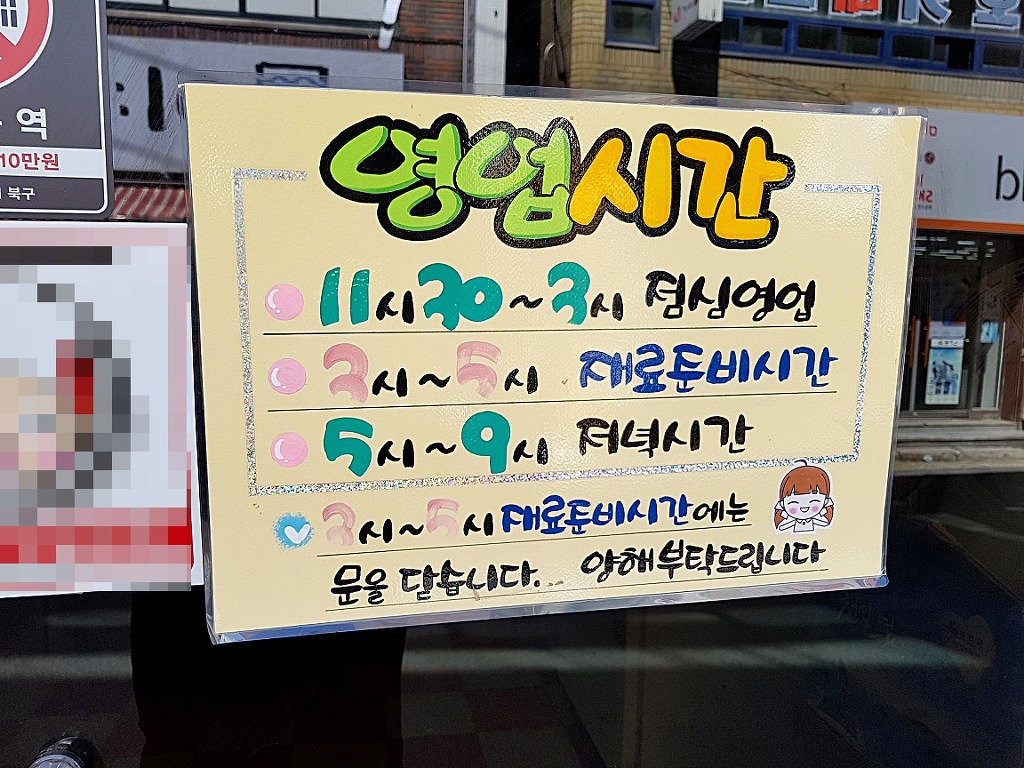 역
10만원
북구
영업시간
11시30~3시 점심영업
3시~5시 재료준비시간
5시~9시 저녁시간
3시~5시 재료준비시간에는
문을 닫습니다. 양해부탁드립니다